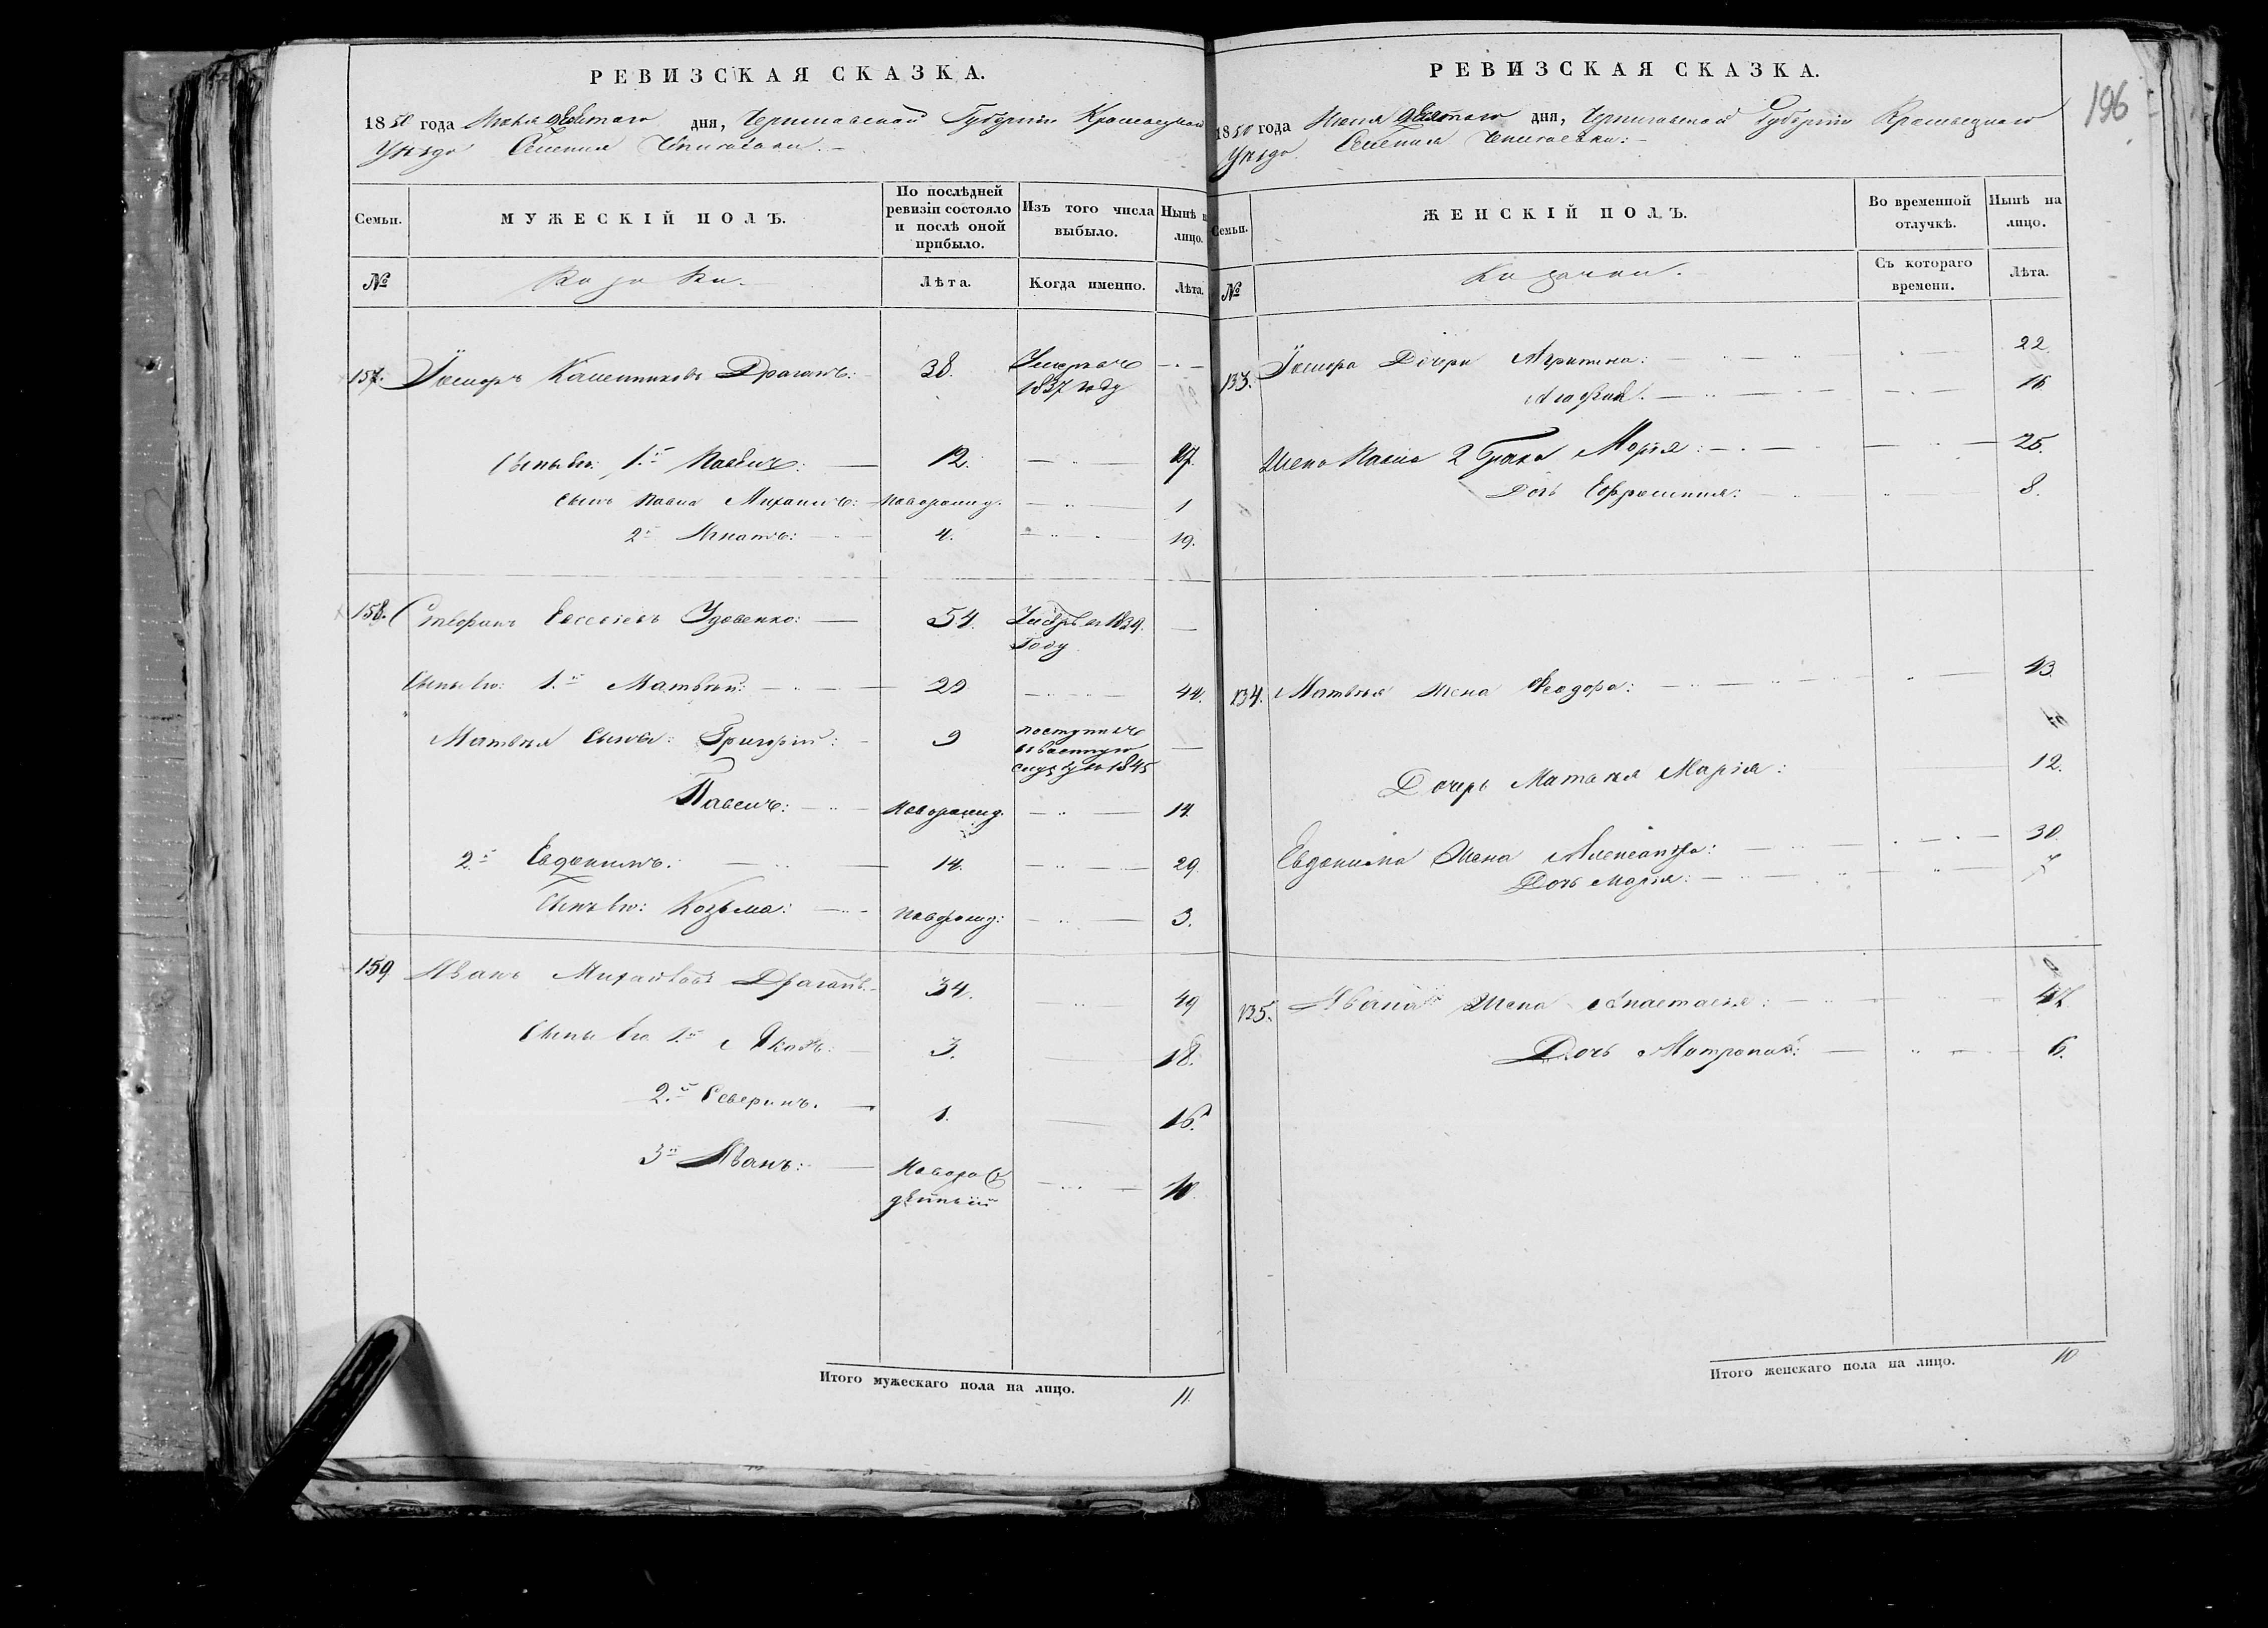 РЕВИЗСКАЯ СКАЗКА.
1850 года Июня девятаго дня, Черниговской Губерніи Кролевецкаго
Уѣзда Селенія
Семьи.
МУЖЕСКІЙ ПОЛЪ.
По послѣдней ревизіи состояло и послѣ оной прибыло.
Изъ того числа выбыло.
Нынѣ на лицо.
№
Козаки.
Лѣта.
Когда именно.
Лѣта.
157. Драганъ: 38. Умеръ 1837 году
Сыновья 1й Павелъ: 12. 27.
Сынъ Павла Михаилъ: новорожд. 1
2й Игнатъ: 4. 19.
158. Евсеевъ Удовенко: 54. 1839. году
Сыны его: 1й Матвѣй: 29 44.
Матвѣя сыны: Григорій: 9 поступилъ въ военную службу въ 1845
Павелъ: новорожд. 14.
2й Евдокимъ: 14. 29
Сынъ его: Козьма: новорожд: 3.
159 Иванъ Михайловъ Драганъ 34. 49
Сыны его 1й Яковъ: 3. 18.
2й Северинъ. 1. 16.
3й Иванъ: Новорожденный 10.
Итого мужескаго пола на лицо. 11.
196
РЕВИЗСКАЯ СКАЗКА.
1850 года Июня девятаго дня, Черниговской Губерніи Кролевецкаго
Уѣзда Селенія
Семьи.
ЖЕНСКІЙ ПОЛЪ.
Во временной отлучкѣ.
Нынѣ на лицо.
№
Козачки.
Съ котораго времени.
Лѣта.
133. Дочери 22
Агафія. 16
Жена Павла 2 брака Марія: 25.
Дочь Ефросинія: 8.
134. Матвѣя жена Феодора: 43.
Дочерь Матвѣя Марія: 12.
Евдокима Жена Александра: 30.
Дочь Марія: 7
135. Ивана Жена Анастасія: 47.
Дочь Матрона: 6.
Итого женскаго пола на лицо. 10